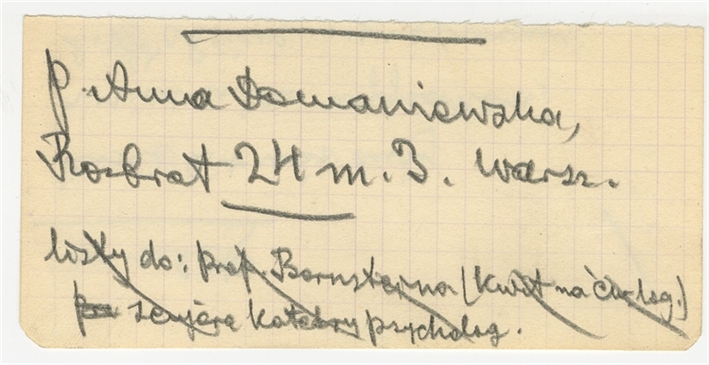 P. Anna Domaniewska,
Rozbrat 24 m. 3. Warsz.
listy do: prof. Bornsteina (Kwit na
Katedry psycholog.